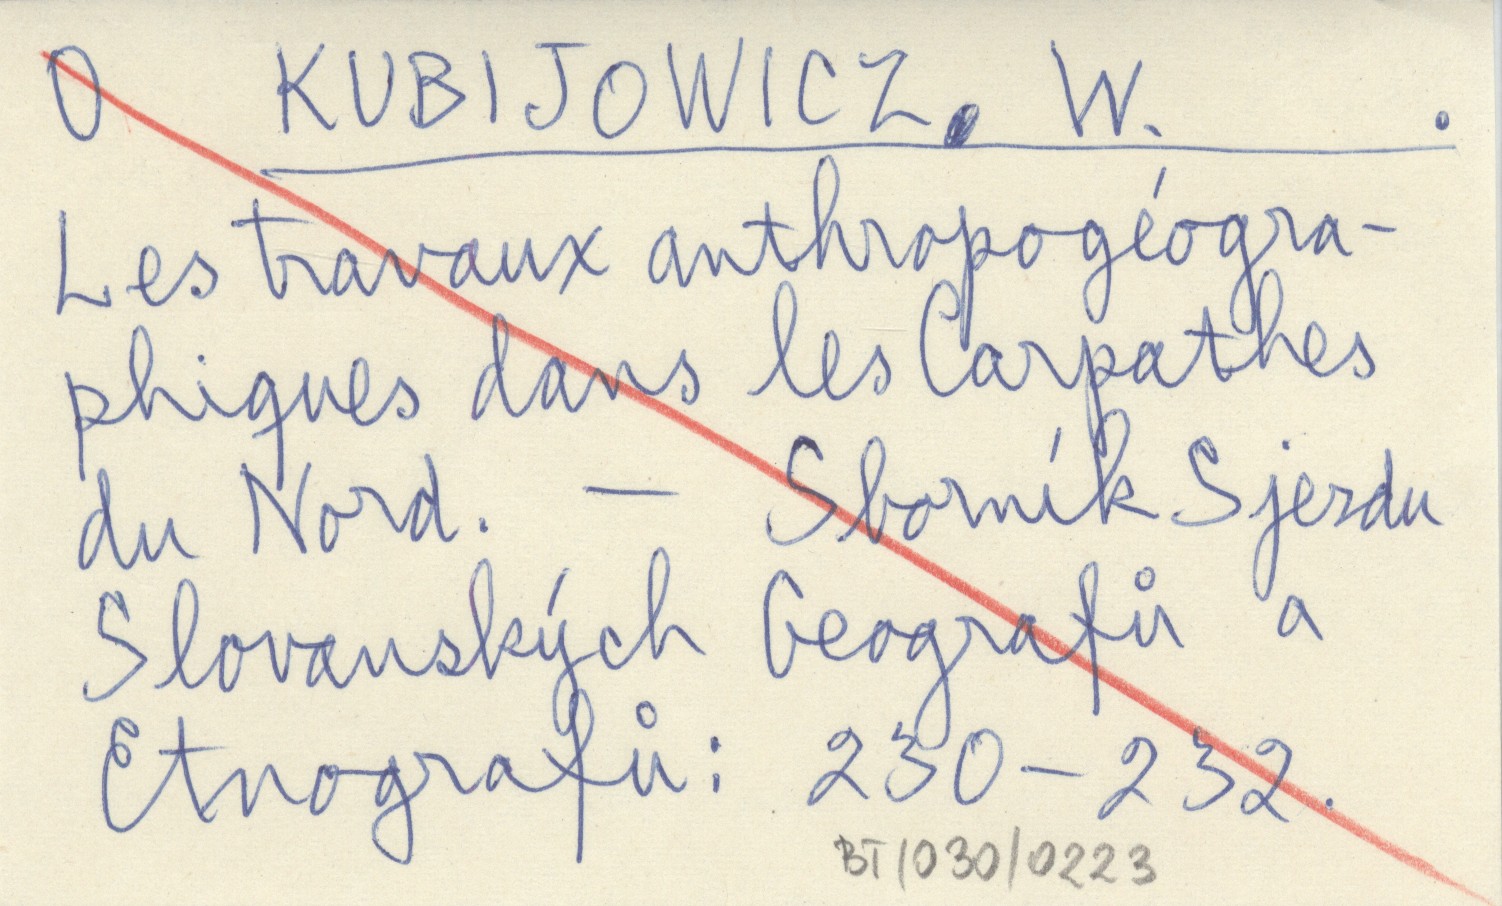 O KUBIJOWICZ, W. .
Les travaux anthropogéogra-
phiques dans les Carpathes
du Nord. — Sborník Sjezdu
Slovanských Geografů a
Etnografů: 230-232.
BT/030/0223